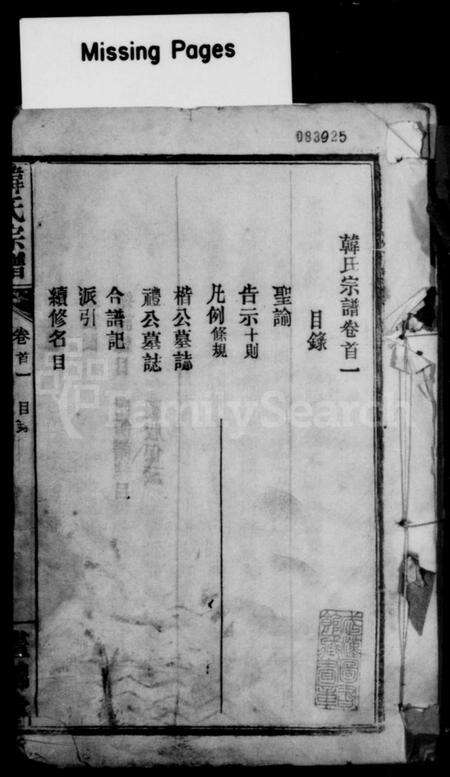 Missing Pages
083925
韓氏宗譜卷首一
目錄
聖諭
告示十則
凡例條規
楷公墓誌
禮公墓誌
合譜記
派引
續修名目
韓氏宗譜
卷首一
目錄
FamilySearch